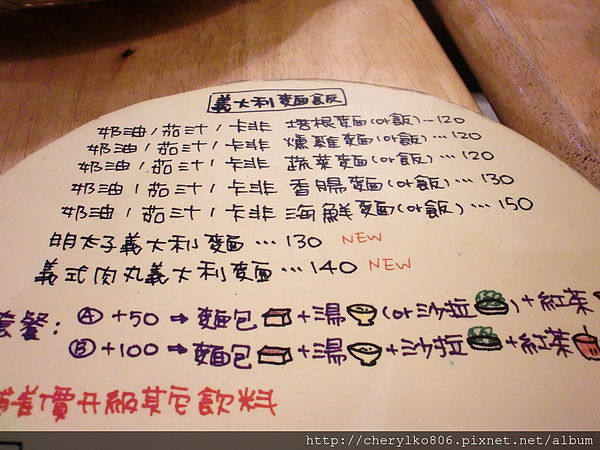 義大利麵飯
奶油/茄汁/卡非 培根麵(or飯)…120
奶油/茄汁/卡非 燻雞麵(or飯)…120
奶油/茄汁/卡非 蔬菜麵(or飯)…120
奶油/茄汁/卡非 香腸麵(or飯)…130
奶油/茄汁/卡非 海鮮麵(or飯)…150
明太子義大利麵…130 NEW
義式肉丸義大利麵…140 NEW
套餐: Ⓐ +50 → 麵包+湯(or沙拉)+紅茶
Ⓑ +100 → 麵包+湯+沙拉+紅茶
補差價升級其它飲料
http://cherylko806.pixnet.net/album